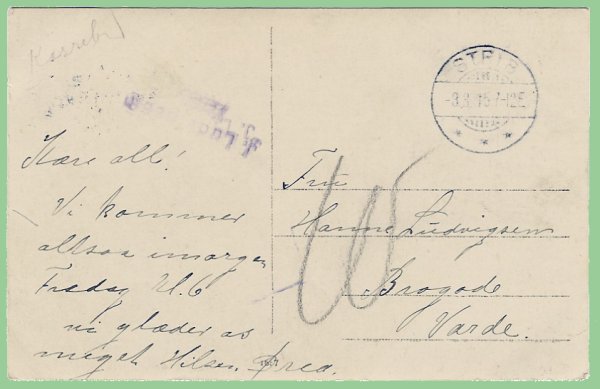 Kære all!
Vi kommer
altsaa imorgen
Fredag Kl. 6
vi glæder os
meget Hilsen
STRIB
-3.3.15.7-12E
Fru
Hanne Ludvigsen
Brogade
Varde.
10